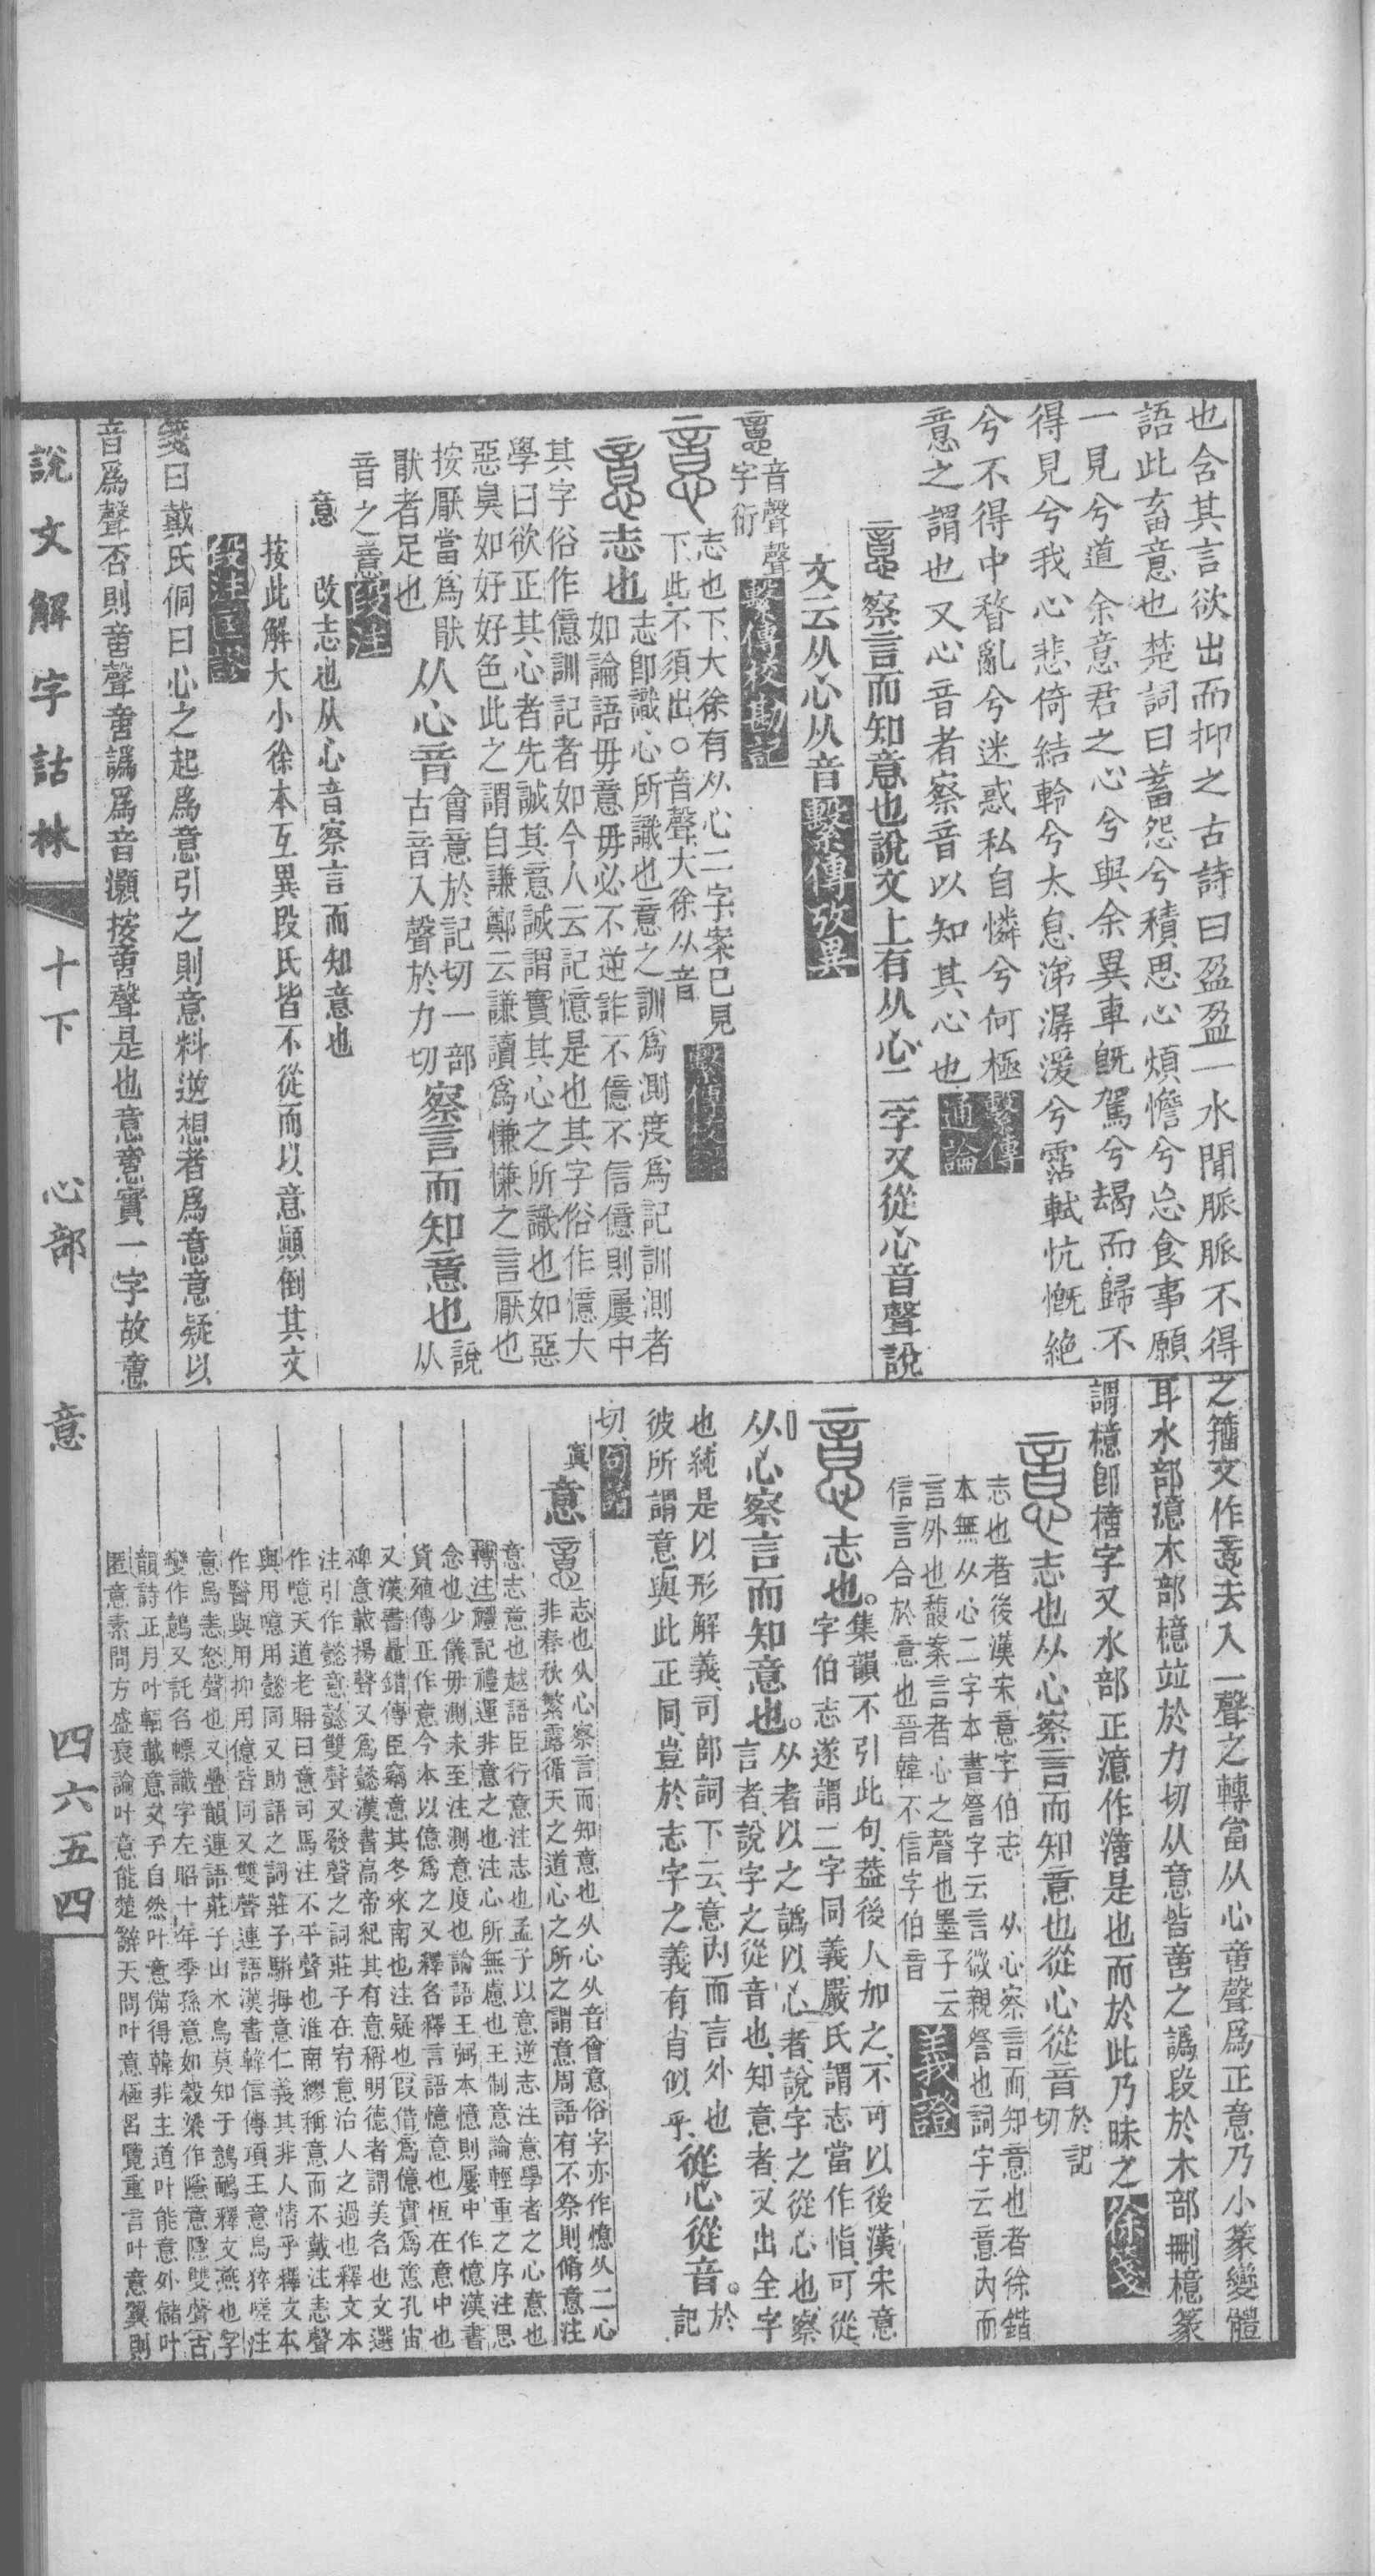 也含其言欲出而抑之古詩曰盈盈一水間脈脈不得
語此畜意也楚詞曰蓄怨兮積思心煩憺兮忘食事願
一見兮道余意君之心兮與余異車旣駕兮朅而歸不
得見兮我心悲倚結軨兮太息涕潺湲兮霑軾忼慨絕
兮不得中瞀亂兮迷惑私自憐兮何極繫傳
意之謂也又心音者察音以知其心也通論
察言而知意也說文上有从心二字又從心音聲說
文云从心从音繫傳攷異
音聲聲
字衍
繫傳校勘記
志也下大徐有从心二字案已見
下此不須出○音聲大徐从音
繫傳校錄
志也
志卽識心所識也意之訓爲測度爲記訓測者
如論語毋意毋必不逆詐不億不信億則屢中
其字俗作億訓記者如今人云記憶是也其字俗作憶大
學曰欲正其心者先誠其意誠謂實其心之所識也如惡
惡臭如好好色此之謂自謙鄭云謙讀爲慊慊之言厭也
按厭當爲猒
猒者足也
从心音
會意於記切一部
古音入聲於力切
察言而知意也
說从
音之意
段注
意
改志也从心音察言而知意也
按此解大小徐本互異段氏皆不從而以意顚倒其文
段注匡謬
箋曰戴氏侗曰心之起爲意引之則意料逆想者爲意意疑以
音爲聲否則𠶷聲𠶷譌爲音灝按𠶷聲是也意𢡃實一字故意
之籒文作𢡃去入一聲之轉當从心𠶷聲爲正意乃小篆變體
耳水部澺木部檍竝於力切从意皆𠶷之譌段於木部刪檍篆
謂檍卽㯖字又水部正澺作𣿉是也而於此乃昧之徐箋
志也从心察言而知意也從心從音
於記
切
志也者後漢宋意字伯志　从心察言而知意也者徐鍇
本無从心二字本書詧字云言微親詧也詞字云意內而
言外也馥案言者心之聲也墨子云
信言合於意也晉韓不信字伯音
義證
志也。
集韻不引此句蓋後人加之不可以後漢宋意
字伯志遂謂二字同義嚴氏謂志當作恉可從
从心察言而知意也。
从者以之譌以心者說字之從心也察
言者說字之從音也知意者又出全字
也純是以形解義司部詞下云意內而言外也
彼所謂意與此正同豈於志字之義有肖似乎
從心從音。
於記
切
句讀
意
志也从心察言而知意也从心从音會意俗字亦作憶从二心
非春秋繁露循天之道心之所之謂意周語有不祭則脩意注
意志意也越語臣行意注志也孟子以意逆志注意學者之心意也
轉注禮記禮運非意之也注心所無慮也王制意論輕重之序注思
念也少儀毋測未至注測意度也論語王弼本憶則屢中作憶漢書
貨殖傳正作意今本以億爲之又釋名釋言語憶意也恆在意中也
又漢書鼂錯傳臣竊意其冬來南也注疑也叚借爲億實爲𢡃孔宙
碑意載揚聲又爲懿漢書高帝紀其有意稱明德者謂美名也文選
注引作懿意懿雙聲又發聲之詞莊子在宥意治人之過也釋文本
作噫天道老聃曰意司馬注不平聲也淮南繆稱意而不戴注志聲
與用噫用懿同又助語之詞莊子駢拇意仁義其非人情乎釋文本
作醫與用抑用億皆同又雙聲連語漢書韓信傳項王意烏猝嗟注
意烏恚怒聲也又疊韻連語莊子山木鳥莫知于鷾鴯釋文燕也字
變作鷾又託名幖識字左昭十年季孫意如穀梁作隱意隱雙聲古
韻詩正月叶輻載意文子自然叶意備得韓非主道叶能意外儲叶
匿意素問方盛衰論叶意能楚辭天問叶意極呂覽重言叶意翼則
說文解字詁林
十下
心部
意
四六五四